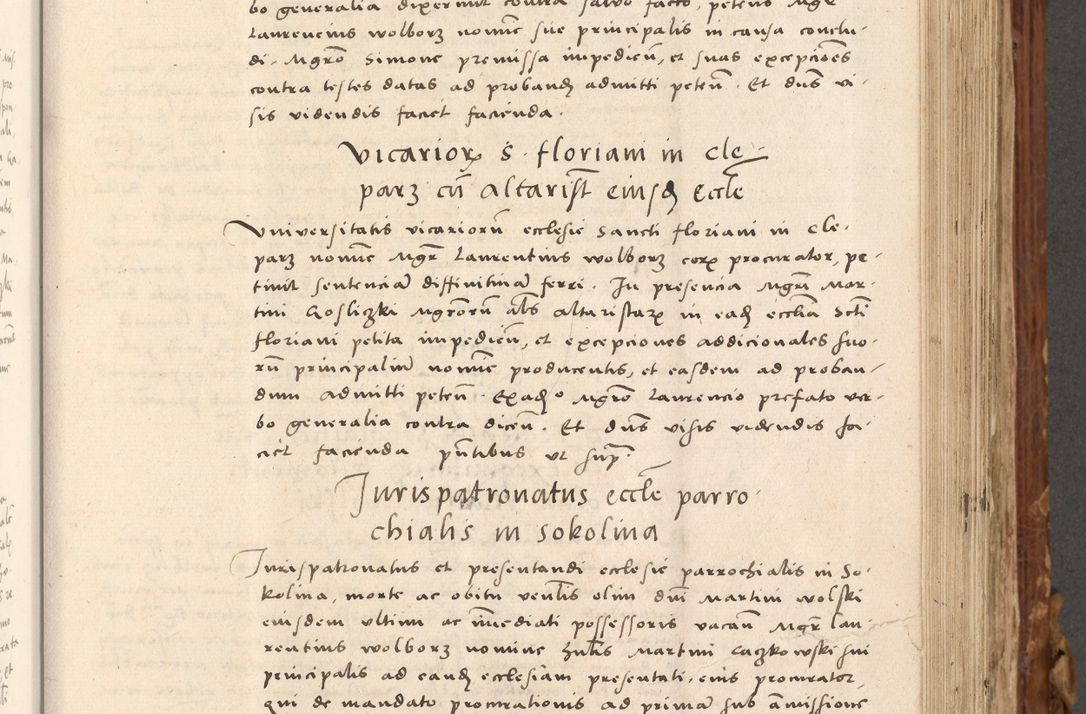 bo generalia dixerunt contra salvo facto, petens Mgr
Laurencius wolborz nomine sue principalis in causa conclu-
di. Mgro Simone premissa impedien, et suas excepciones
contra testes datas ad proband admitti peten. Et dns vi-
sis videndis faciet facienda.
Vicarior S. Floriani in Cle-
parz cu Altarist eiusd eccle
Vniversitatis vicariorum ecclesie Sancti Floriani in Cle-
parz nomine Mgr Laurentius wolborz eorum procurator, pe-
tiuit sentenciam diffinitiuam ferri. In presencia Mgri Mar-
tini Gosliczki Mgrorum als altaristarum in ead ecclia Scti
Floriani petita impedien, et excepciones addicionales suo-
rum principalium nomine producentis, et easdem ad proban-
dum admitti peten. Ex ado Mgro Laurencio prefato ver-
bo generalia contra dicen. Et dns visis videndis fa-
ciet facienda pntibus ut sup.
Jurispatronatus eccle parro-
chialis in Sokolina
Jurispatronatus et presentandi ecclesie parrochialis in So-
kolina, morte ac obitu venlis olim dni Martini wolski
eiusdem ultimi ac immediati possessoris vacan Mgr Lau-
rentius wolborz nomine hnlis Martini Caczkowski sui
principalis ad eand ecclesiam presentati, eius procurator,
qui de mandato procurationis ad primam sub amissione